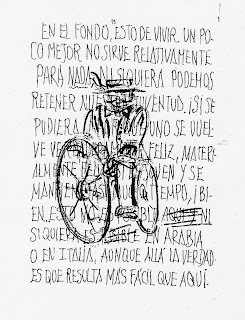 EN EL FONDO, ESTO DE VIVIR UN PO-
CO MEJOR NO SIRVE RELATIVAMENTE
PARA NADA. NI SIQUIERA PODEMOS
RETENER JUVENTUD. ¡SI SE
PUDIERA UNO SE VUEL-
VE FELIZ, MATERI-
ALMENTE Y SE
MAN TIEMPO, ¡BI-
EN, ESTO NO NI
SIQUIERA ES EN ARABIA
O EN ITALIA, AUNQUE ALLÁ LA VERDAD
ES QUE RESULTA MÁS FÁCIL QUE AQUÍ.